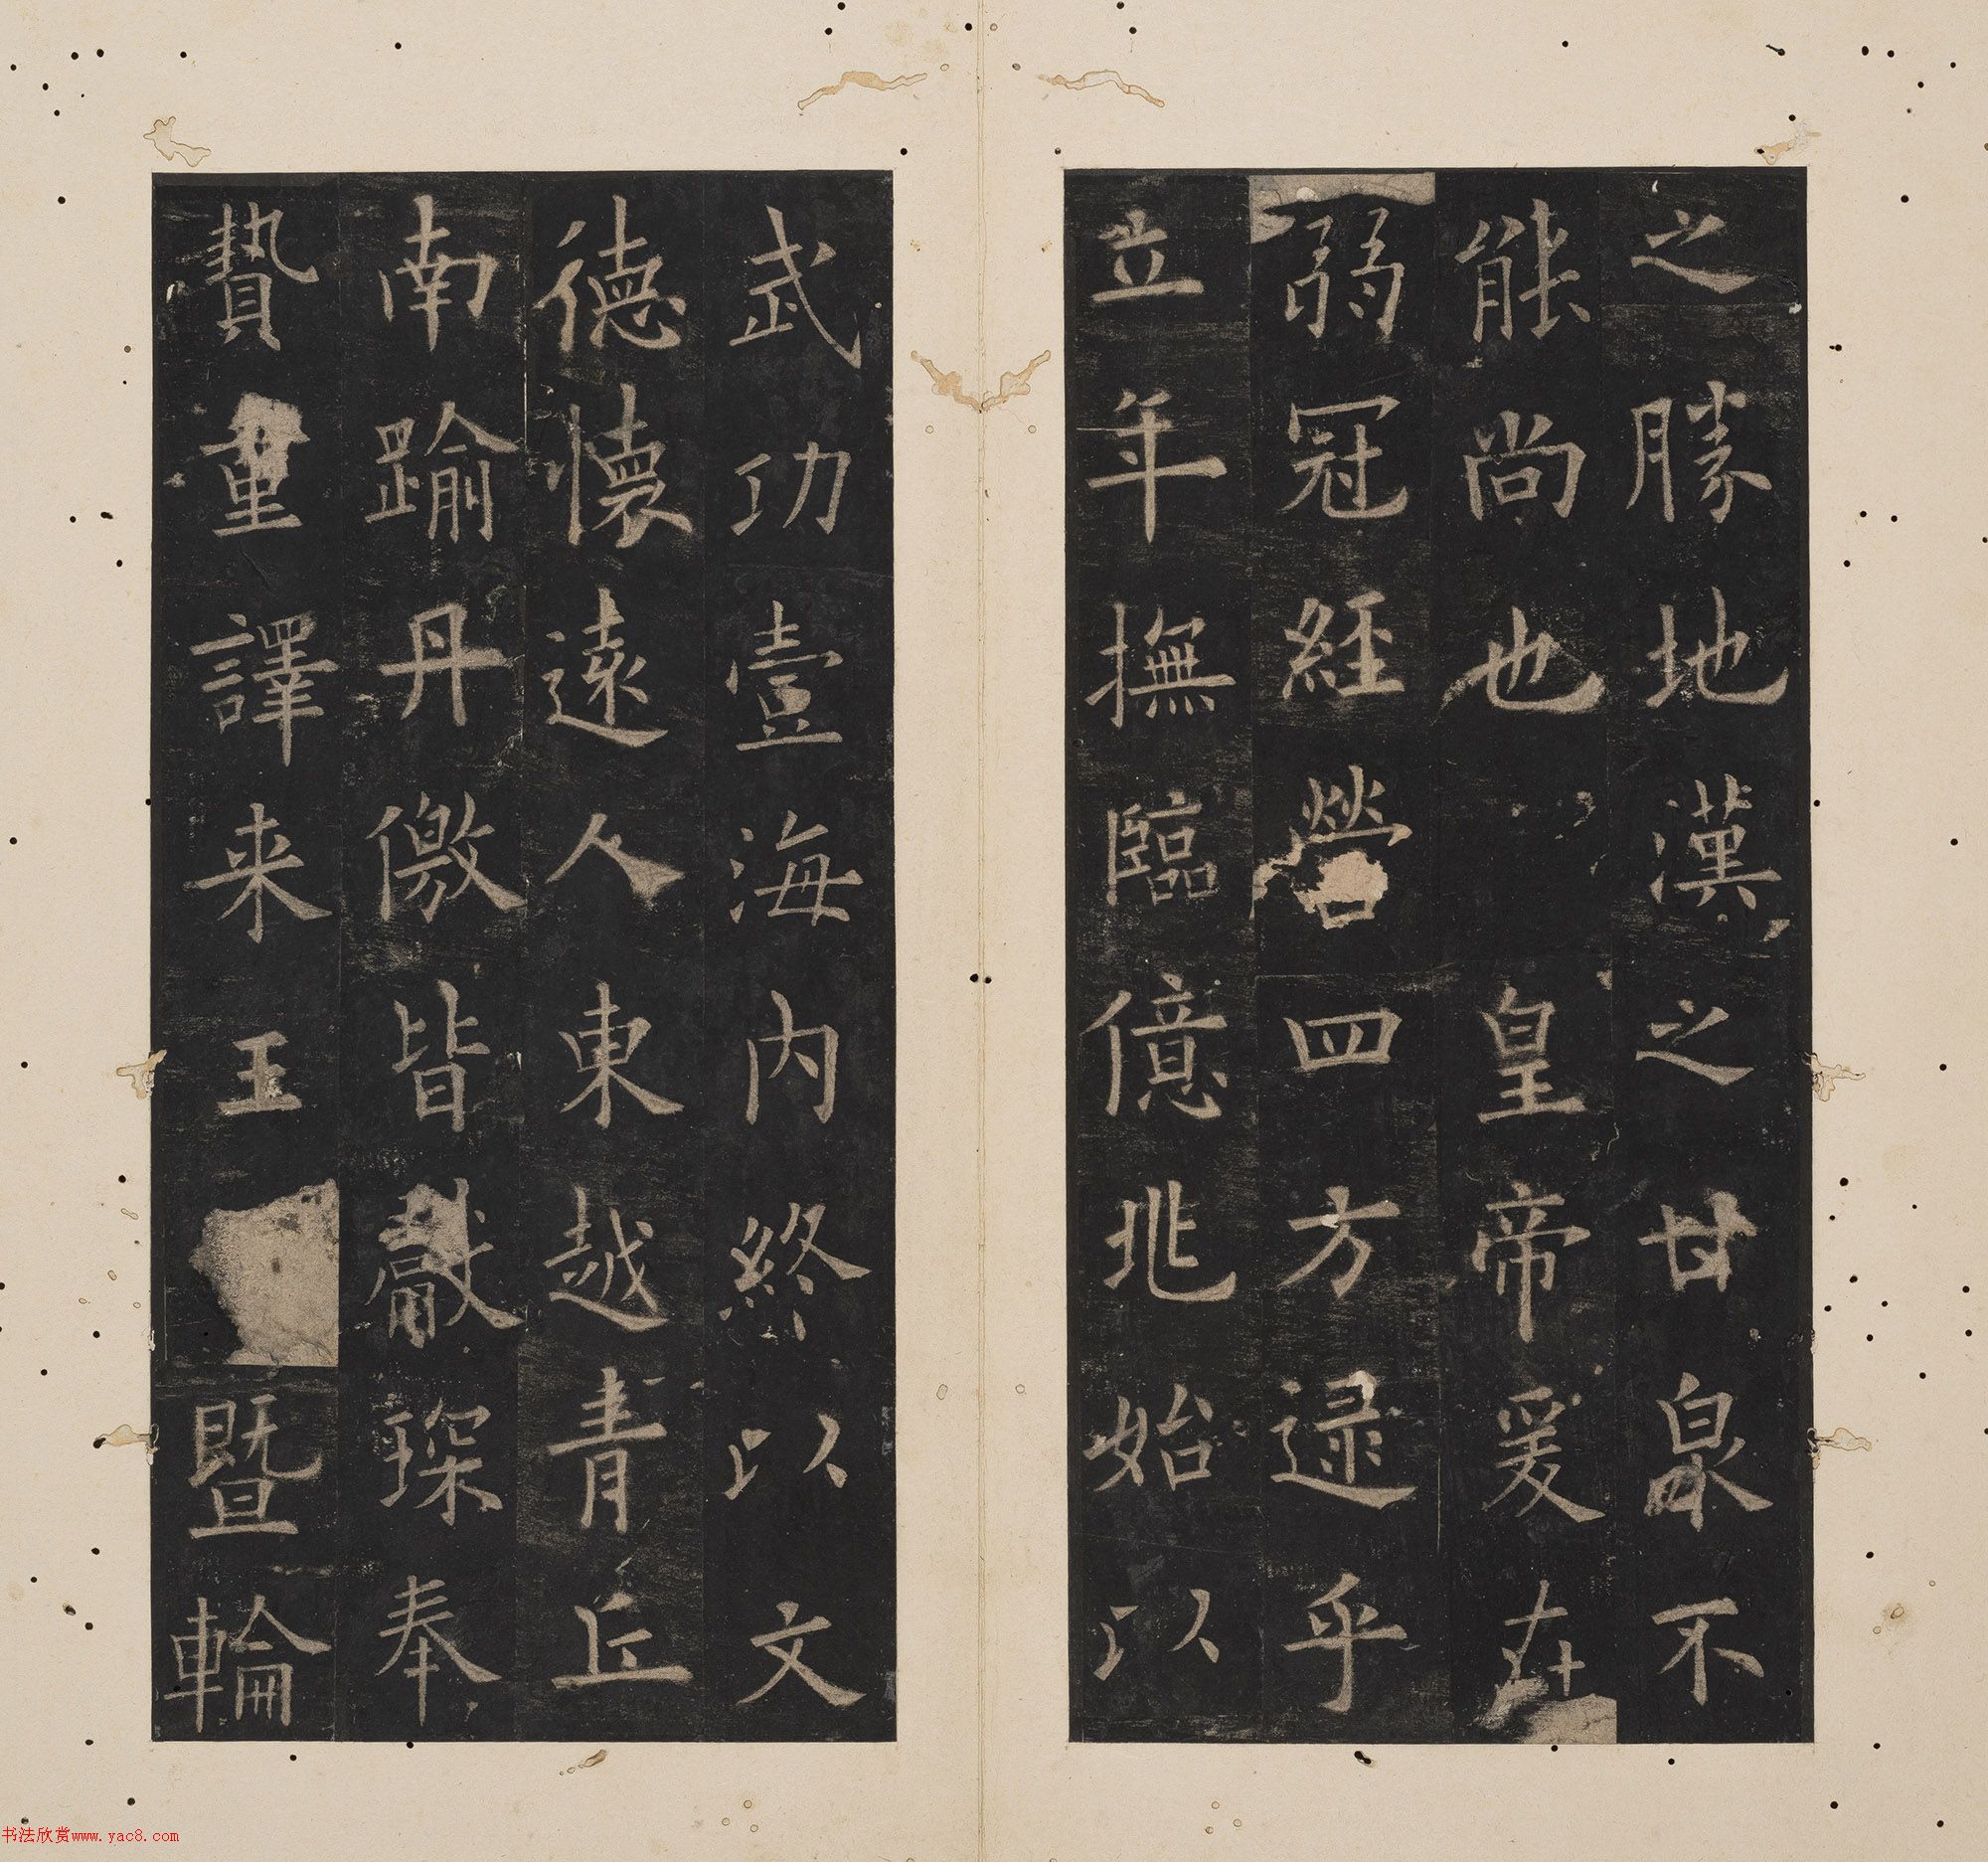 之勝地漢之甘泉不
能尚也皇帝爰在
弱冠經營四方逯乎
立年撫臨億兆始以
武功壹海内終以文
德懷遠人東越青丘
南踰丹儌皆獻琛奉
贄重譯来王暨輪
书法欣赏www.yac8.com